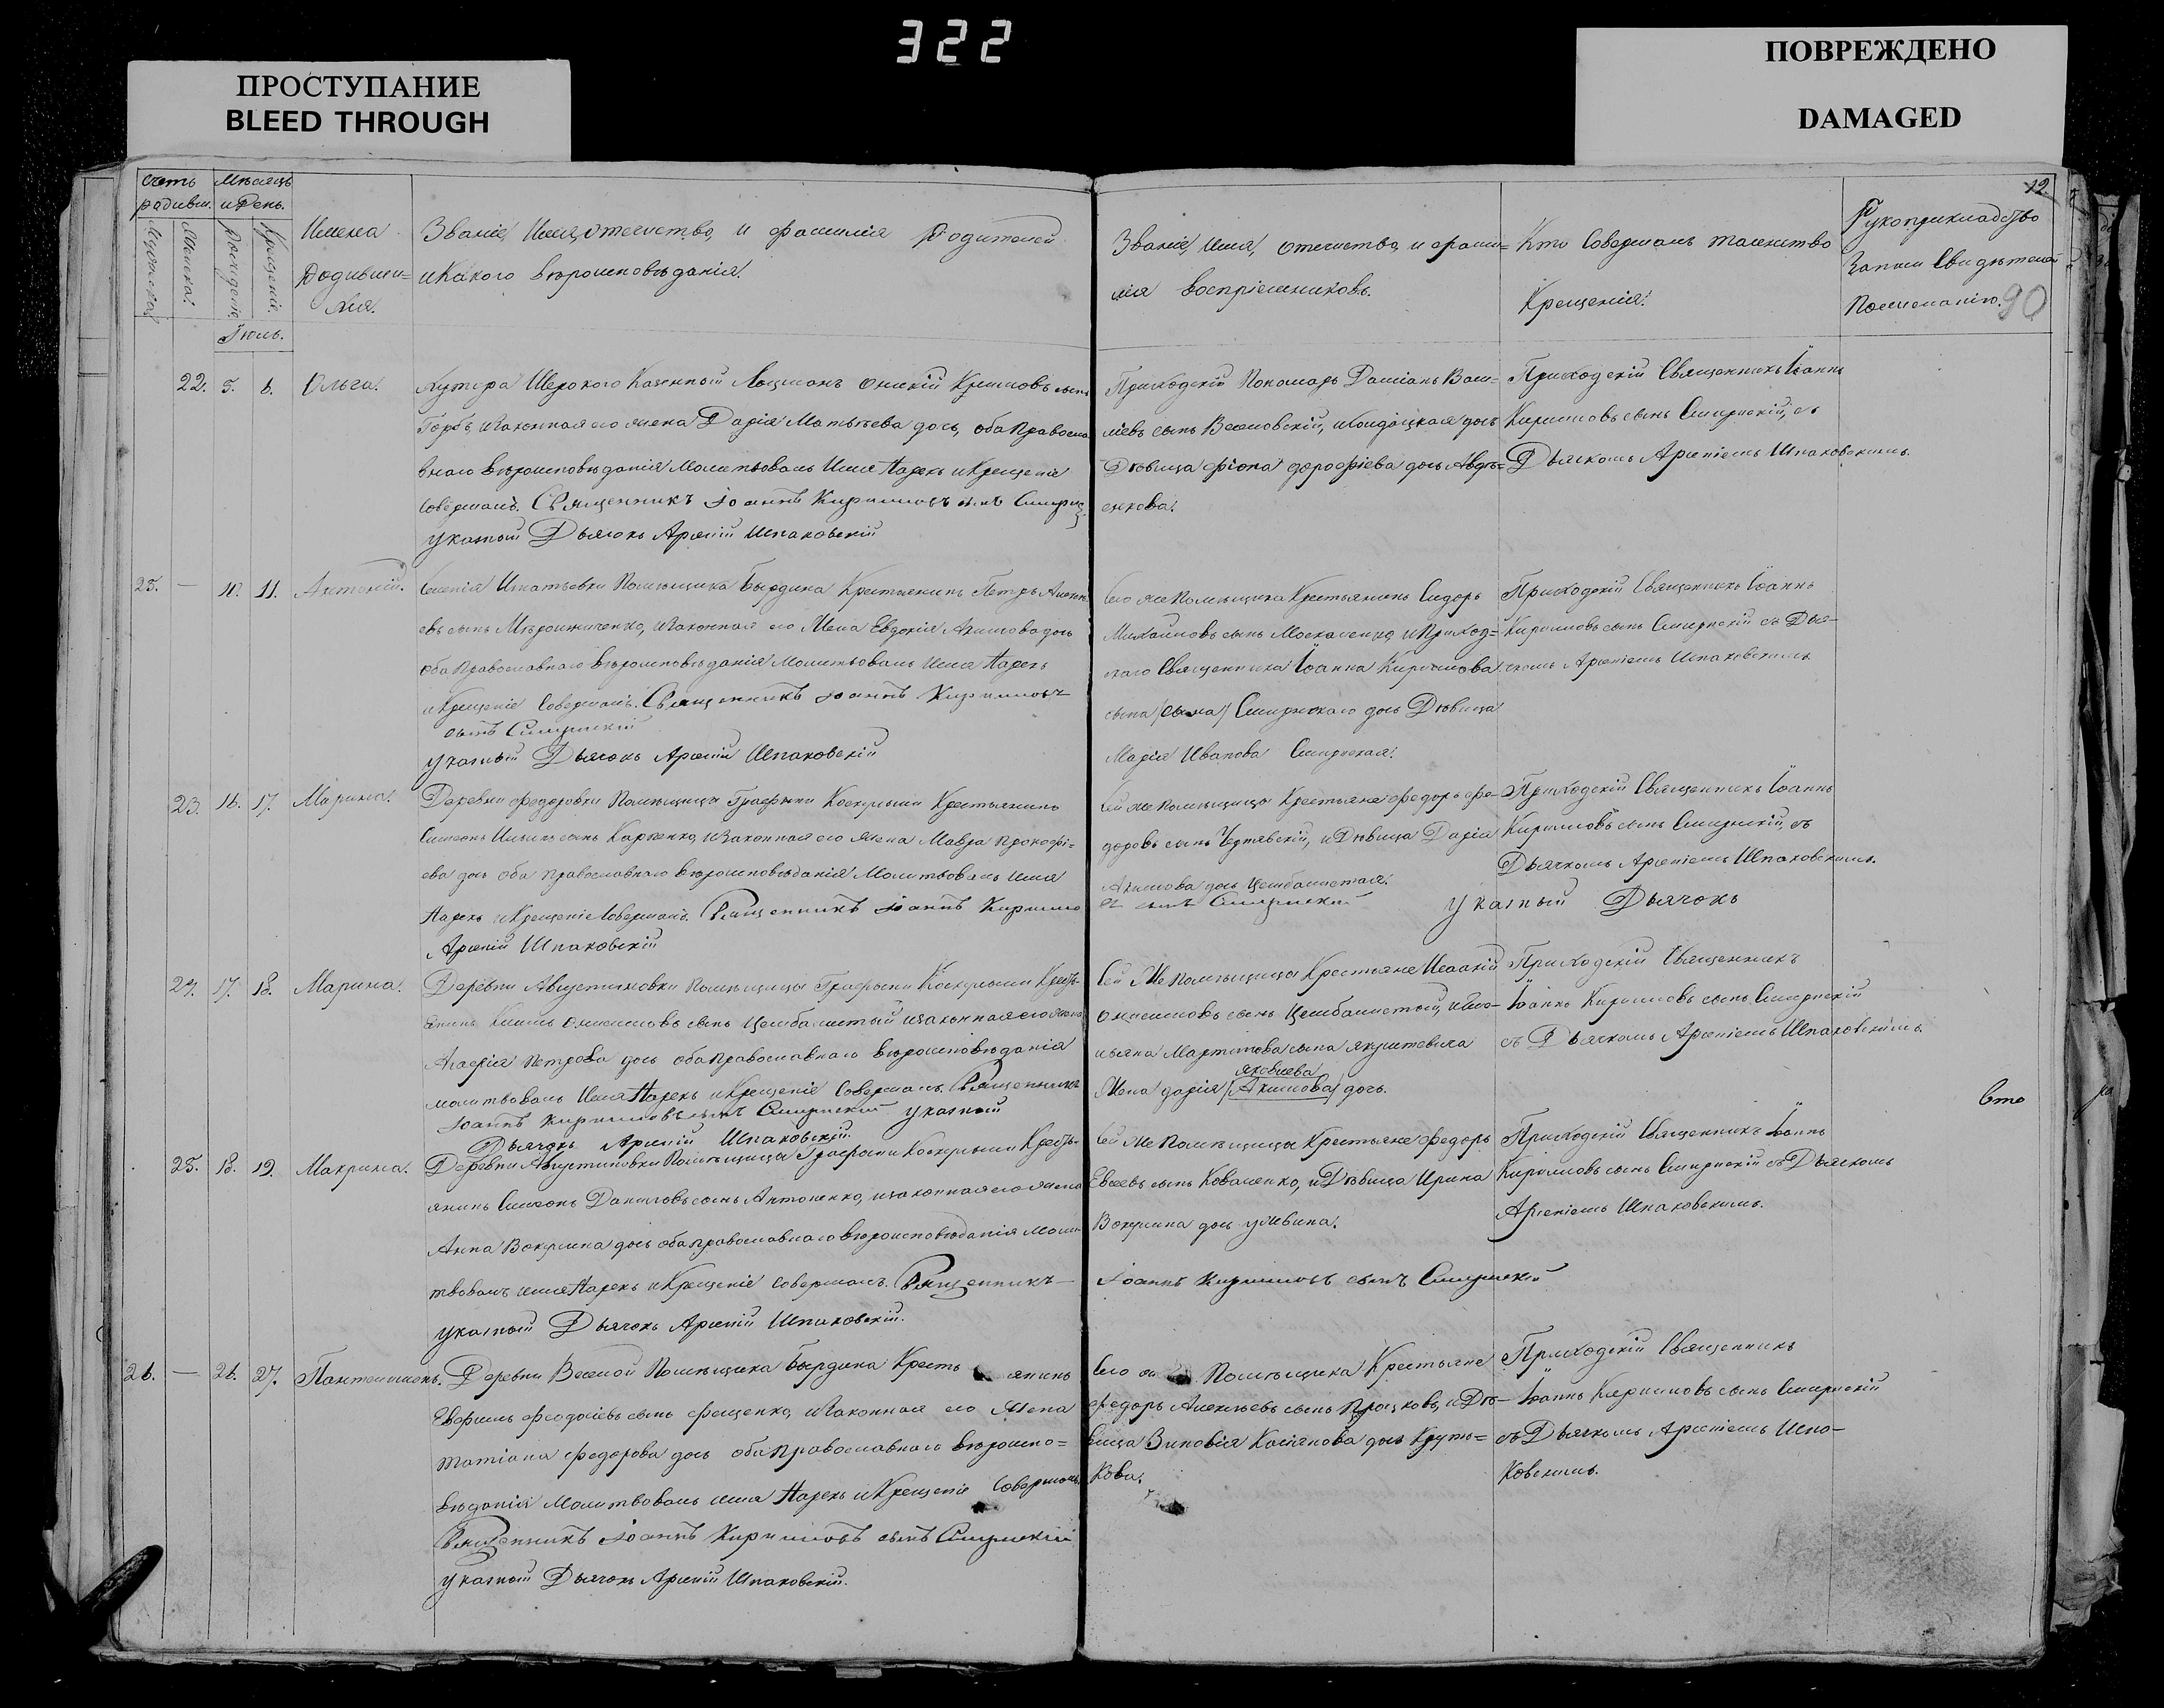 322
ПРОСТУПАНИЕ
BLEED THROUGH
ПОВРЕЖДЕНО
DAMAGED
12
90
Счетъ родивш.
Мѣсяцъ и День.
Мужеска
Женска
Рожденіе
Крещеніе
Іюль.
Имена
Родивши=
хся.
Званіе, Имя, отечиство, и фамилія Родителей
и Какого вѣроисповѣданія.
Званіе, имя, отечиство, и фами=
лія воспріемниковъ.
Кто Совершалъ таинство
Крещенія.
Рукоприкладство
Записи Свидѣтелей
По желанію.
22. 5. 6. Ольга.
Хутора Широкого Казенный
сынъ
Горбъ, и Законная его жена Дарія Матвѣева дочь, оба Правосла
внаго вѣроисповѣданія Молитвовалъ Имя Нарекъ и Крещеніе
Совершалъ. Священникъ Іоаннъ Кириловъ сынъ Смирнскій
указный Дьячокъ Арсеній Шпаковскій
Приходскій Пономарь Даміанъ Васи=
ліевъ сынъ Веселовскій,
дочь
Дѣвица Фіона дорофіева дочь Авдѣ=
енкова.
Приходскій Священникъ Іоаннъ
Кириловъ сынъ Смирнскій, съ
Дьячкомъ Арсеніемъ Шпаковскимъ.
25. — 10. 11. Антоній.
Селенія Игнатьевки Помѣщика Бырдина Крестьянинъ Петръ Алексѣ
евъ сынъ Мѣрошниченко, и Законная его Жена Евдокія Акимова дочь
оба Православнаго вѣроисповѣданія Молитвовалъ Имя Нарекъ
и Крещеніе Совершалъ. Священникъ Іоаннъ Кириловъ
сынъ Смирнскій
указный Дьячокъ Арсеній Шпаковскій
Его же Помѣщика Крестьянинъ Сидоръ
Михайловъ сынъ Москаленко, и Приход=
скаго Священника Іоанна Кирилова
сына (сына) Смирнскаго дочь Дѣвица
Марія Иванова Смирнская.
Приходскій Священникъ Іоаннъ
Кириловъ сынъ Смирнскій съ Дья-
чкомъ Арсеніемъ Шпаковскимъ
23. 16. 17. Марина.
Деревни Федоровки Помѣщицы Графини Коскулыи Крестьянинъ
Симеонъ Ильинъ сынъ Карпенко, и Законная его жена Мавра Прокофі=
ева дочь оба православнаго вѣроисповѣданія Молитвовалъ имя
Нарекъ и Крещеніе Совершалъ. Священникъ Іоаннъ Кирило
Арсеній Шпаковскій
Сей же помѣщицы Крестьяне Федоръ Фе-
доровъ сынъ Чернявскій, и Дѣвица Дарія
Акимова дочь Цымбалистая.
въ сынъ Смирнскій указный Дьячокъ
Приходскій Священникъ Іоаннъ
Кириловъ сынъ Смирнскій, съ
Дьячкомъ Арсеніемъ Шпаковскимъ.
24. 17. 18. Марина.
Деревни Августиновки Помѣщицы Графини Коскулыи Кресть-
янинъ Климъ Онисимовъ сынъ Цымбалистый и законная его жена
Агафія Петрова дочь оба Православнаго вѣроисповѣданія
молитвовалъ Имя Нарекъ и Крещеніе Совершалъ. Священникъ
Іоаннъ Кириловъ сынъ Смирнскій указный
Дьячокъ Арсеній Шпаковскій.
Сей Же Помѣщицы Крестьяне Исаакій
Онисимовъ сынъ Цымбалистый, и Еме-
льяна Мартинова сына
Яковлева
Жена дарія (Акимова) дочь.
Приходскій Священникъ
Іоаннъ Кириловъ сынъ Смирнскій
съ Дьячкомъ Арсеніемъ Шпаковскимъ
Сто
25. 18. 19. Макрина.
Деревни Августиновки Помѣщицы Графини Коскулыи Кресть-
янинъ Симеонъ Даниловъ сынъ Антоненко, и законная его жена
Анна Вокулина дочь оба православнаго вѣроисповѣданія Моли
твовалъ имя Нарекъ и Крещеніе Совершалъ. Священникъ —
указный Дьячокъ Арсеній Шпаковскій.
Сей Же Помѣщицы Крестьяне Федоръ
Евсеевъ сынъ Коваленко, и Дѣвица Ирина
Вокулина дочь
Іоаннъ Кириловъ сынъ Смирнскій
Приходскій Священникъ Іоаннъ
Кириловъ сынъ Смирнскій съ Дьячкомъ
Арсеніемъ Шпаковскимъ.
26. — 26. 27. Пантелимонъ.
Деревни Веселой Помѣщика Бырдина Кресть янинъ
Евфимъ Феодосіевъ сынъ Фещенко, и Законная его Жена
татіана Федорова дочь оба Православнаго вѣроиспо=
вѣданія Молитвовалъ имя Нарекъ и Крещеніе Совершалъ
Священникъ Іоаннъ Кириловъ сынъ Смирнскій
указный Дьячокъ Арсеній Шпаковскій.
Его же Помѣщика Крестьяне
Федоръ Алексѣевъ сынъ Процковъ, и Дѣ-
вица Зиновія Касіянова дочь Круть=
кова.
Приходскій Священникъ
Іоаннъ Кириловъ сынъ Смирнскій
съ Дьячкомъ Арсеніемъ Шпа-
ковскимъ.